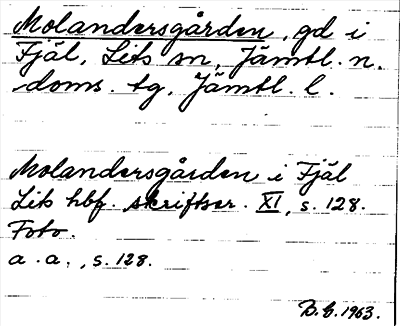 Molandersgården, gd i
Fjäl, Lits sn, Jämtl. n.
doms. tg, Jämtl. l.
Molandersgården i Fjäl
Lits hbf. skriftser. XI, s. 128.
Foto.
a. a., s. 128.
B.G. 1963.